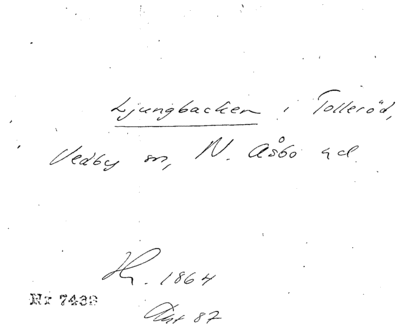 Ljungbacken i Tolleröd,
Vedby sn, N. Åsbo hd
Hr. 1864
Nr 7438
Akt 87